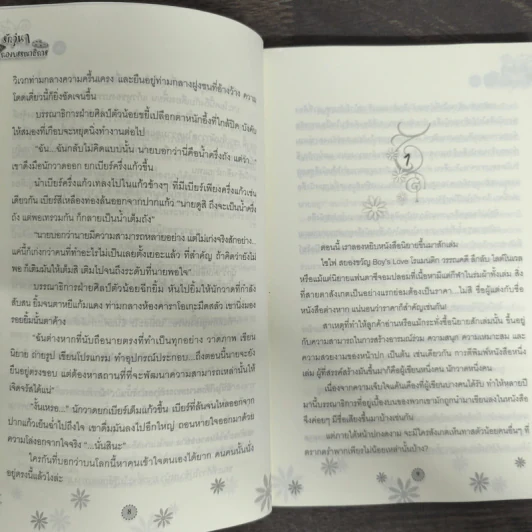 วิเวกท่ามกลางความครื้นเครง และยืนอยู่ท่ามกลางฝูงชนที่อ้างว้าง ความ
โดดเดี่ยวนี้ก็ยิ่งชัดเจนขึ้น
บรรณาธิการฝ่ายศิลป์ตัวน้อยขยี้เปลือกตาหนักอึ้งที่ใกล้ปิด บังคับ
ให้สมองที่เกือบจะหยุดนิ่งทำงานต่อไป
"ฉัน...ฉันกลับไม่คิดแบบนั้น นายบอกว่านี่คือน้ำครึ่งถัง แต่ว่า..."
เขาดึงมือนักวาดออก ยกเบียร์ครึ่งแก้วขึ้น
นำเบียร์ครึ่งแก้วเทลงไปในแก้วข้างๆ ที่มีเบียร์เพียงครึ่งแก้วเช่น
เดียวกัน เบียร์สีเหลืองทองล้นออกจากปากแก้ว "นายดูสิ ถึงจะเป็นน้ำครึ่ง
ถัง แต่พอเทรวมกัน ก็กลายเป็นน้ำเต็มถัง"
"นายบอกว่านายมีความสามารถหลายอย่าง แต่ไม่เก่งจริงสักอย่าง...
แค่นี้ก็เก่งกว่าคนที่ทำอะไรไม่เป็นเลยตั้งเยอะแล้ว ที่สำคัญ ถ้าคิดว่ายังไม่
พอ ก็เติมมันให้เต็มสิ เติมไปจนถึงระดับที่นายพอใจ"
บรรณาธิการฝ่ายศิลป์ตัวน้อยฉีกยิ้ม หันไปยิ้มให้นักวาดที่กำลัง
สับสน ยิ้มจนตาหยีแก้มแดง ท่ามกลางห้องคาราโอเกะมืดสลัว เขานิ่งมอง
รอยยิ้มนั้นตาค้าง
"ฉันต่างหากที่นับถือนายตรงที่ทำเป็นทุกอย่าง วาดภาพ เขียน
นิยาย ถ่ายรูป เขียนโปรแกรม ทำอุปกรณ์ประกอบ...ถึงตอนนี้นายจะยัง
ยืนอยู่ตรงขอบ แต่ต้องหาสถานที่ที่จะพัฒนาความสามารถเหล่านั้นให้
เจิดจรัสได้แน่"
"งั้นเหรอ..." นักวาดยกเบียร์ดื่มแก้วขึ้น เบียร์ที่ล้นจนไหลออกจาก
ปากแก้วเย็นฉ่ำไปถึงใจ เขาดื่มมันลงไปอึกใหญ่ ถอนหายใจออกมาด้วย
ความโล่งอกจากใจจริง "...นั่นสินะ"
ใครกันที่บอกว่าบนโลกนี้หาคนเข้าใจตนเองได้ยาก คนคนนั้นนั่ง
อยู่ตรงนี้แล้วไงล่ะ
8
1
ตอนนี้ เราลองหยิบหนังสือนิยายขึ้นมาสักเล่ม
ไซไฟ สยองขวัญ Boy's Love โรแมนติก วรรณคดี ลึกลับ ไลต์โนเวล
หรือแม้แต่นิยายแฟนตาซีจอมปลอมที่เนื้อหามีแต่กีฬาในร่มผ้าทั้งเล่ม สิ่ง
ที่สายตาสังเกตเป็นอย่างแรกย่อมต้องเป็นราคา...ไม่สิ ชื่อผู้แต่งกับชื่อ
หนังสือต่างหาก แน่นอนว่าราคาก็สำคัญเช่นกัน
สาเหตุที่ทำให้ลูกค้าอ่านหรือแม้กระทั่งซื้อนิยายสักเล่มนั้น ขึ้นอยู่
กับความสามารถในการสร้างอารมณ์ร่วม ความสนุก ความเหมาะสม และ
ความสวยงามของหน้าปก เป็นต้น เช่นเดียวกัน การตีพิมพ์หนังสือหนึ่ง
เล่ม ผู้ที่สรรค์สร้างมันขึ้นมาก็คือผู้เขียนหนึ่งคน นักวาดหนึ่งคน
เนื่องจากความเจ็บใจแค้นเคืองที่ผู้เขียนปางคนได้รับ ทำให้หลายปี
มานี้บรรณาธิการที่อยู่เบื้องบนของพวกเขามักถูกนำมาเขียนลงในหนังสือ
จึงค่อยๆ มีชื่อเสียงขึ้นมาบ้างเช่นกัน
แต่ภายใต้หน้าปกงดงาม จะมีใครสังเกตเห็นทาสตัวน้อยคนอื่นๆ ที่
ตรากตรำพากเพียรไม่น้อยเหล่านั้นบ้าง?
9